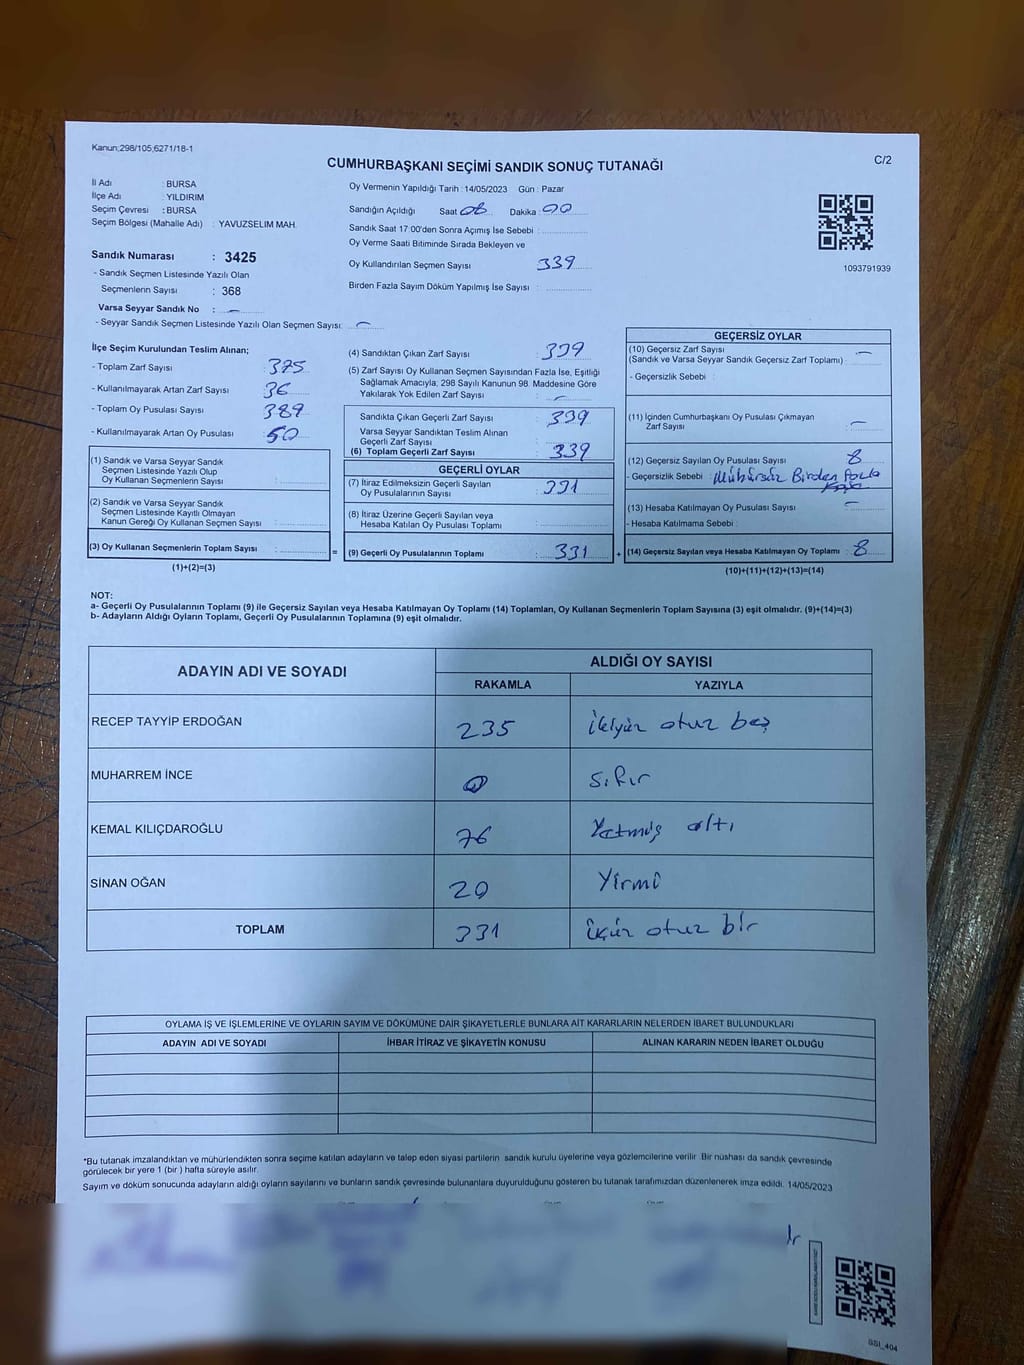 Kanun;298/105;6271/18-1
CUMHURBAŞKANI SEÇİMİ SANDIK SONUÇ TUTANAĞI
C/2
İl Adı : BURSA
İlçe Adı : YILDIRIM
Seçim Çevresi : BURSA
Seçim Bölgesi (Mahalle Adı) : YAVUZSELİM MAH.
Oy Vermenin Yapıldığı Tarih :14/05/2023 Gün : Pazar
Sandığın Açıldığı Saat 08 Dakika : 00
Sandık Saat 17:00'den Sonra Açımış İse Sebebi :
Oy Verme Saati Bitiminde Sırada Bekleyen ve
Oy Kullandırılan Seçmen Sayısı 339
Birden Fazla Sayım Döküm Yapılmış İse Sayısı :
1093791939
Sandık Numarası : 3425
- Sandık Seçmen Listesinde Yazılı Olan
Seçmenlerin Sayısı : 368
Varsa Seyyar Sandık No : -
- Seyyar Sandık Seçmen Listesinde Yazılı Olan Seçmen Sayısı: -
İlçe Seçim Kurulundan Teslim Alınan;
- Toplam Zarf Sayısı : 375
- Kullanılmayarak Artan Zarf Sayısı : 36
- Toplam Oy Pusulası Sayısı : 389
- Kullanılmayarak Artan Oy Pusulası : 50
(1) Sandık ve Varsa Seyyar Sandık
Seçmen Listesinde Yazılı Olup
Oy Kullanan Seçmenlerin Sayısı :
(2) Sandık ve Varsa Seyyar Sandık
Seçmen Listesinde Kayıtlı Olmayan
Kanun Gereği Oy Kullanan Seçmen Sayısı :
(3) Oy Kullanan Seçmenlerin Toplam Sayısı :
(1)+(2)=(3)
(4) Sandıktan Çıkan Zarf Sayısı : 339
(5) Zarf Sayısı Oy Kullanan Seçmen Sayısından Fazla İse, Eşitliği
Sağlamak Amacıyla, 298 Sayılı Kanunun 98. Maddesine Göre
Yakılarak Yok Edilen Zarf Sayısı : -
Sandıkta Çıkan Geçerli Zarf Sayısı : 339
Varsa Seyyar Sandıktan Teslim Alınan
Geçerli Zarf Sayısı :
(6) Toplam Geçerli Zarf Sayısı : 339
GEÇERLİ OYLAR
(7) İtiraz Edilmeksizin Geçerli Sayılan
Oy Pusulalarının Sayısı : 331
(8) İtiraz Üzerine Geçerli Sayılan veya
Hesaba Katılan Oy Pusulası Toplamı :
= (9) Geçerli Oy Pusulalarının Toplamı : 331 +
GEÇERSİZ OYLAR
(10) Geçersiz Zarf Sayısı
(Sandık ve Varsa Seyyar Sandık Geçersiz Zarf Toplamı) : -
- Geçersizlik Sebebi :
(11) İçinden Cumhurbaşkanı Oy Pusulası Çıkmayan
Zarf Sayısı : -
(12) Geçersiz Sayılan Oy Pusulası Sayısı : 8
- Geçersizlik Sebebi : Mühürsüz Birden fazla
(13) Hesaba Katılmayan Oy Pusulası Sayısı : -
- Hesaba Katılmama Sebebi :
(14) Geçersiz Sayılan veya Hesaba Katılmayan Oy Toplamı : 8
(10)+(11)+(12)+(13)=(14)
NOT:
a- Geçerli Oy Pusulalarının Toplamı (9) ile Geçersiz Sayılan veya Hesaba Katılmayan Oy Toplamı (14) Toplamları, Oy Kullanan Seçmenlerin Toplam Sayısına (3) eşit olmalıdır. (9)+(14)=(3)
b- Adayların Aldığı Oyların Toplamı, Geçerli Oy Pusulalarının Toplamına (9) eşit olmalıdır.
ADAYIN ADI VE SOYADI ALDIĞI OY SAYISI
RAKAMLA YAZIYLA
RECEP TAYYİP ERDOĞAN 235 İkiyüz otuz beş
MUHARREM İNCE 0 Sıfır
KEMAL KILIÇDAROĞLU 76 Yetmiş altı
SİNAN OĞAN 20 Yirmi
TOPLAM 331 üçyüz otuz bir
OYLAMA İŞ VE İŞLEMLERİNE VE OYLARIN SAYIM VE DÖKÜMÜNE DAİR ŞİKAYETLERLE BUNLARA AİT KARARLARIN NELERDEN İBARET BULUNDUKLARI
ADAYIN ADI VE SOYADI İHBAR İTİRAZ VE ŞİKAYETİN KONUSU ALINAN KARARIN NEDEN İBARET OLDUĞU
*Bu tutanak imzalandıktan ve mühürlendikten sonra seçime katılan adayların ve talep eden siyasi partilerin sandık kurulu üyelerine veya gözlemcilerine verilir. Bir nüshası da sandık çevresinde
görülecek bir yere 1 (bir ) hafta süreyle asılır.
Sayım ve döküm sonucunda adayların aldığı oyların sayılarını ve bunların sandık çevresinde bulunanlara duyurulduğunu gösteren bu tutanak tarafımızdan düzenlenerek imza edildi. 14/05/2023
SSI_404